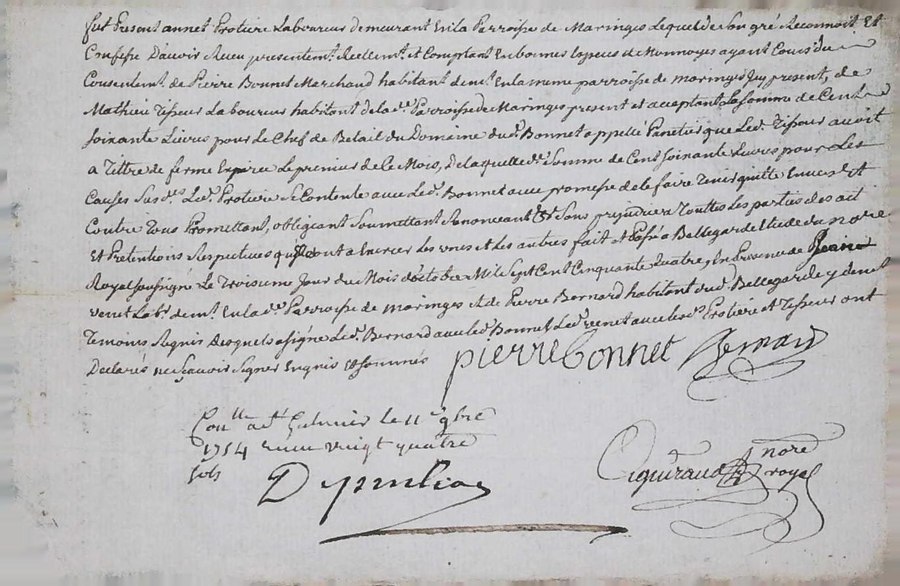 fut Present annet Protiere Laboureur demeurant En la Parroisse de Maringes Lequel de Son gré Reconnoit Et
Confesse D'avoir Receu presentemt. Reellemt. et Comptant En bonnes Especes de Monnoyes ayant Cours du
Consentemt. de Pierre Bonnet Marchand habitant demt. En la meme parroisse de maringes Icy present, de
Mathieu Tisseur Laboureur habitant de lad. Parroisse de Maringes present et acceptant La Somme de Cent
Soixante Livres pour le Chef de Betail du Domaine dud. Bonnet appellé Panetier que Led. Tisseur avoit
a Tittre de ferme Expirée Le premier de Ce Mois, De laquelle de. Somme de Cent Soixante Livres pour Les
Causes Susdes. Led. Protiere Se Contente avec Led. Bonnet avec promesse de le faire Tenir quitte Envers Et
Contre Tous Promettant, obligeant Soumettant Renonceant &r. Sans prejudice a Touttes Les parties des
Et Pretentions Respectives qu'elles ont a Exercer Les unes et Les autres fait et Passé a Bellegarde Etude du nore.
Royal Soussigné Le Troisieme Jour du Mois d'octobre Mil Sept Cent Cinquante Quatre, En Presence de
venet Labr. demt. En lad. Parroisse de maringes et de Pierre Bernard habitant dud. Bellegarde y demt.
Temoins Requis Desquels a signé Led. Bernard avec led. Bonnet Led. venet avec lesd. Protiere et Tisseur ont
Declarés ne Sçavoir Signer Enquis et Sommés
pierre bonnet Bernard
Conllé a St. Galmier le 11e 9bre
1754 receu vingt quatre
sols
nore
royal